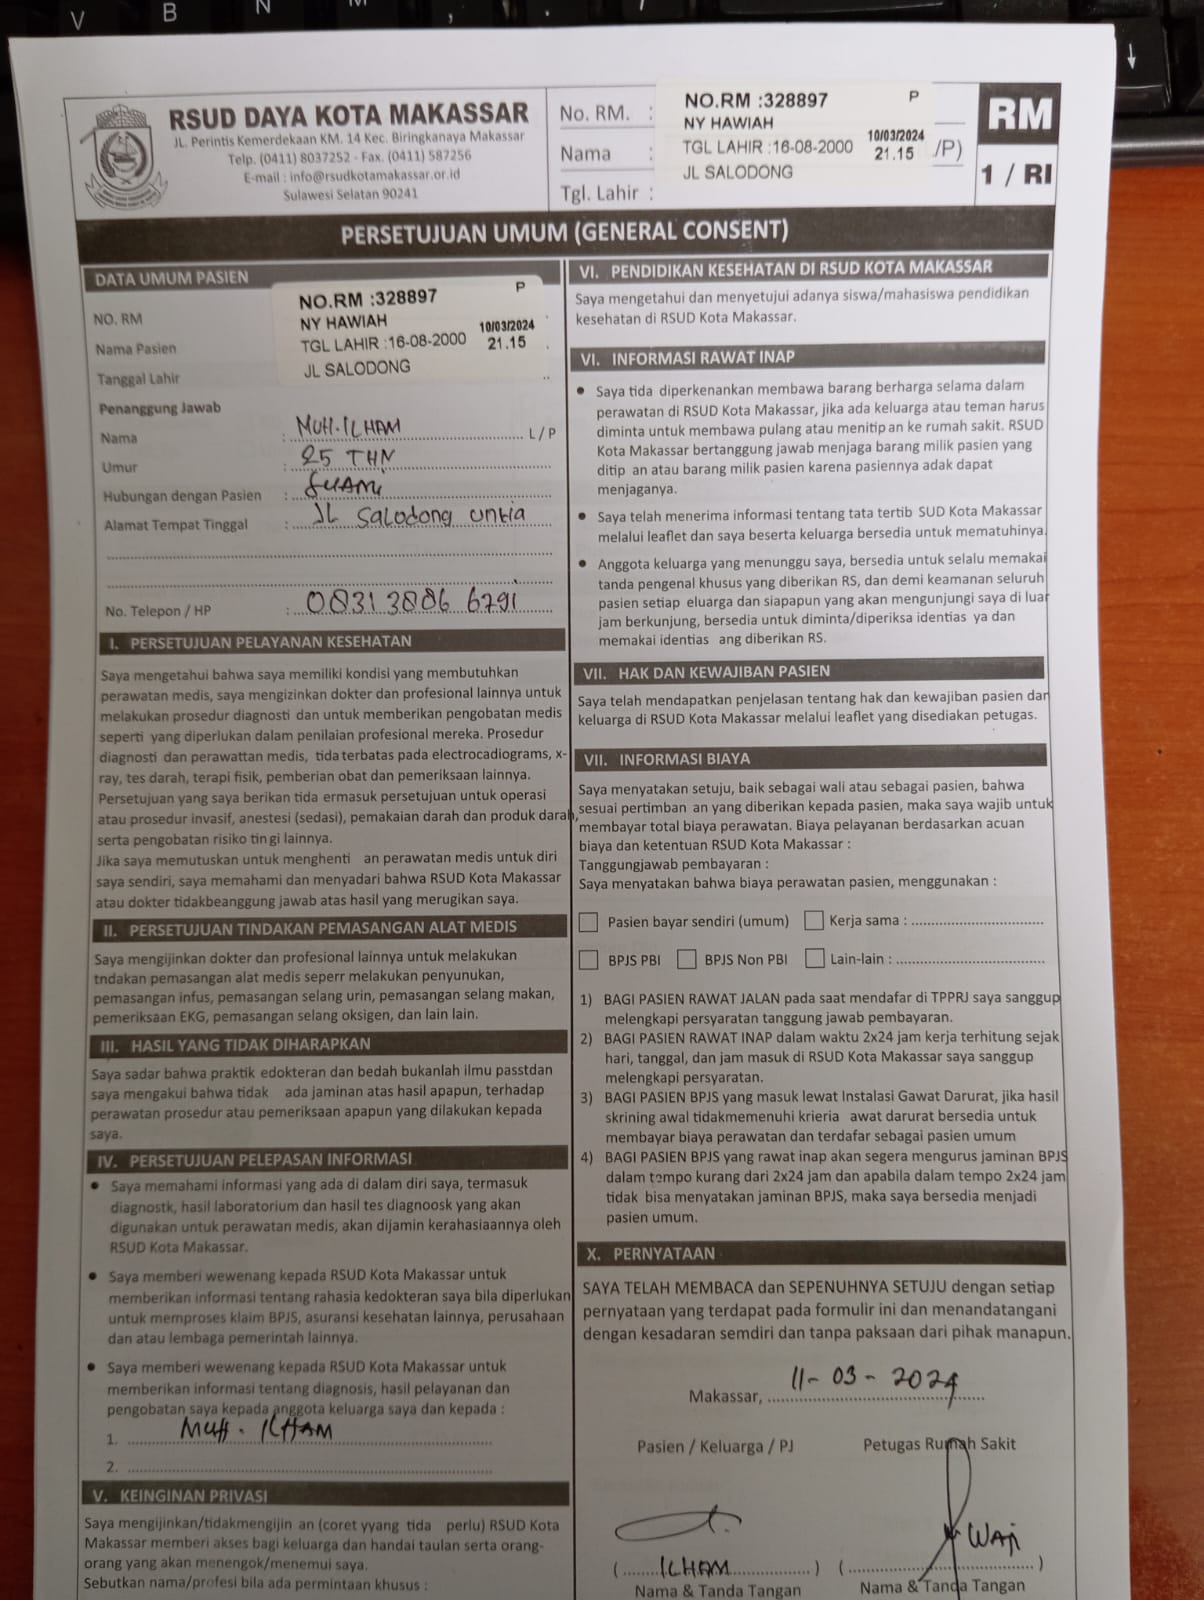 V B N M
RSUD DAYA KOTA MAKASSAR
JL. Perintis Kemerdekaan KM. 14 Kec. Biringkanaya Makassar
Telp. (0411) 8037252 - Fax. (0411) 587256
E-mail : info@rsudkotamakassar.or.id
Sulawesi Selatan 90241
No. RM. :
Nama :
Tgl. Lahir :
NO.RM :328897 P
NY HAWIAH
TGL LAHIR :16-08-2000 10/03/2024 21.15
JL SALODONG
/P)
RM
1 / RI
PERSETUJUAN UMUM (GENERAL CONSENT)
DATA UMUM PASIEN
NO. RM
Nama Pasien
Tanggal Lahir
NO.RM :328897 P
NY HAWIAH
TGL LAHIR :16-08-2000 10/03/2024 21.15
JL SALODONG
Penanggung Jawab
Nama : MUH. ILHAM L / P
Umur : 25 THN
Hubungan dengan Pasien : SUAMi
Alamat Tempat Tinggal : JL Salodong untia
No. Telepon / HP : 0831 3886 6791
I. PERSETUJUAN PELAYANAN KESEHATAN
Saya mengetahui bahwa saya memiliki kondisi yang membutuhkan
perawatan medis, saya mengizinkan dokter dan profesional lainnya untuk
melakukan prosedur diagnosti dan untuk memberikan pengobatan medis
seperti yang diperlukan dalam penilaian profesional mereka. Prosedur
diagnosti dan perawattan medis, tida terbatas pada electrocadiograms, x-
ray, tes darah, terapi fisik, pemberian obat dan pemeriksaan lainnya.
Persetujuan yang saya berikan tida ermasuk persetujuan untuk operasi
atau prosedur invasif, anestesi (sedasi), pemakaian darah dan produk darah,
serta pengobatan risiko tin gi lainnya.
Jika saya memutuskan untuk menghenti an perawatan medis untuk diri
saya sendiri, saya memahami dan menyadari bahwa RSUD Kota Makassar
atau dokter tidakbeanggung jawab atas hasil yang merugikan saya.
II. PERSETUJUAN TINDAKAN PEMASANGAN ALAT MEDIS
Saya mengijinkan dokter dan profesional lainnya untuk melakukan
tndakan pemasangan alat medis seperr melakukan penyunukan,
pemasangan infus, pemasangan selang urin, pemasangan selang makan,
pemeriksaan EKG, pemasangan selang oksigen, dan lain lain.
III. HASIL YANG TIDAK DIHARAPKAN
Saya sadar bahwa praktik edokteran dan bedah bukanlah ilmu passtdan
saya mengakui bahwa tidak ada jaminan atas hasil apapun, terhadap
perawatan prosedur atau pemeriksaan apapun yang dilakukan kepada
saya.
IV. PERSETUJUAN PELEPASAN INFORMASI
• Saya memahami informasi yang ada di dalam diri saya, termasuk
diagnostk, hasil laboratorium dan hasil tes diagnoosk yang akan
digunakan untuk perawatan medis, akan dijamin kerahasiaannya oleh
RSUD Kota Makassar.
• Saya memberi wewenang kepada RSUD Kota Makassar untuk
memberikan informasi tentang rahasia kedokteran saya bila diperlukan
untuk memproses klaim BPJS, asuransi kesehatan lainnya, perusahaan
dan atau lembaga pemerintah lainnya.
• Saya memberi wewenang kepada RSUD Kota Makassar untuk
memberikan informasi tentang diagnosis, hasil pelayanan dan
pengobatan saya kepada anggota keluarga saya dan kepada :
1. MUH. ILHAM
2.
V. KEINGINAN PRIVASI
Saya mengijinkan/tidakmengijin an (coret yyang tida perlu) RSUD Kota
Makassar memberi akses bagi keluarga dan handai taulan serta orang-
orang yang akan menengok/menemui saya.
Sebutkan nama/profesi bila ada permintaan khusus :
VI. PENDIDIKAN KESEHATAN DI RSUD KOTA MAKASSAR
Saya mengetahui dan menyetujui adanya siswa/mahasiswa pendidikan
kesehatan di RSUD Kota Makassar.
VI. INFORMASI RAWAT INAP
• Saya tida diperkenankan membawa barang berharga selama dalam
perawatan di RSUD Kota Makassar, jika ada keluarga atau teman harus
diminta untuk membawa pulang atau menitip an ke rumah sakit. RSUD
Kota Makassar bertanggung jawab menjaga barang milik pasien yang
ditip an atau barang milik pasien karena pasiennya adak dapat
menjaganya.
• Saya telah menerima informasi tentang tata tertib SUD Kota Makassar
melalui leaflet dan saya beserta keluarga bersedia untuk mematuhinya.
• Anggota keluarga yang menunggu saya, bersedia untuk selalu memakai
tanda pengenal khusus yang diberikan RS, dan demi keamanan seluruh
pasien setiap eluarga dan siapapun yang akan mengunjungi saya di luar
jam berkunjung, bersedia untuk diminta/diperiksa identias ya dan
memakai identias ang diberikan RS.
VII. HAK DAN KEWAJIBAN PASIEN
Saya telah mendapatkan penjelasan tentang hak dan kewajiban pasien dan
keluarga di RSUD Kota Makassar melalui leaflet yang disediakan petugas.
VII. INFORMASI BIAYA
Saya menyatakan setuju, baik sebagai wali atau sebagai pasien, bahwa
sesuai pertimban an yang diberikan kepada pasien, maka saya wajib untuk
membayar total biaya perawatan. Biaya pelayanan berdasarkan acuan
biaya dan ketentuan RSUD Kota Makassar :
Tanggungjawab pembayaran :
Saya menyatakan bahwa biaya perawatan pasien, menggunakan :
Pasien bayar sendiri (umum) Kerja sama :
BPJS PBI BPJS Non PBI Lain-lain :
1) BAGI PASIEN RAWAT JALAN pada saat mendafar di TPPRJ saya sanggup
melengkapi persyaratan tanggung jawab pembayaran.
2) BAGI PASIEN RAWAT INAP dalam waktu 2x24 jam kerja terhitung sejak
hari, tanggal, dan jam masuk di RSUD Kota Makassar saya sanggup
melengkapi persyaratan.
3) BAGI PASIEN BPJS yang masuk lewat Instalasi Gawat Darurat, jika hasil
skrining awal tidakmemenuhi krieria awat darurat bersedia untuk
membayar biaya perawatan dan terdafar sebagai pasien umum
4) BAGI PASIEN BPJS yang rawat inap akan segera mengurus jaminan BPJS
dalam tempo kurang dari 2x24 jam dan apabila dalam tempo 2x24 jam
tidak bisa menyatakan jaminan BPJS, maka saya bersedia menjadi
pasien umum.
X. PERNYATAAN
SAYA TELAH MEMBACA dan SEPENUHNYA SETUJU dengan setiap
pernyataan yang terdapat pada formulir ini dan menandatangani
dengan kesadaran semdiri dan tanpa paksaan dari pihak manapun.
Makassar, 11-03-2024
Pasien / Keluarga / PJ Petugas Rumah Sakit
( ILHAM ) ( WAJI )
Nama & Tanda Tangan Nama & Tanda Tangan